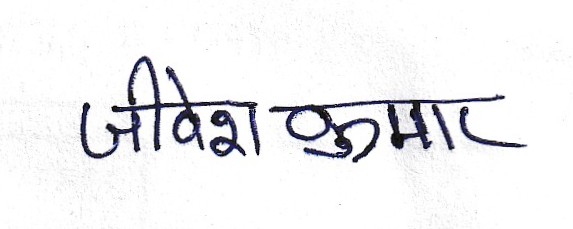 जीवेश कुमार